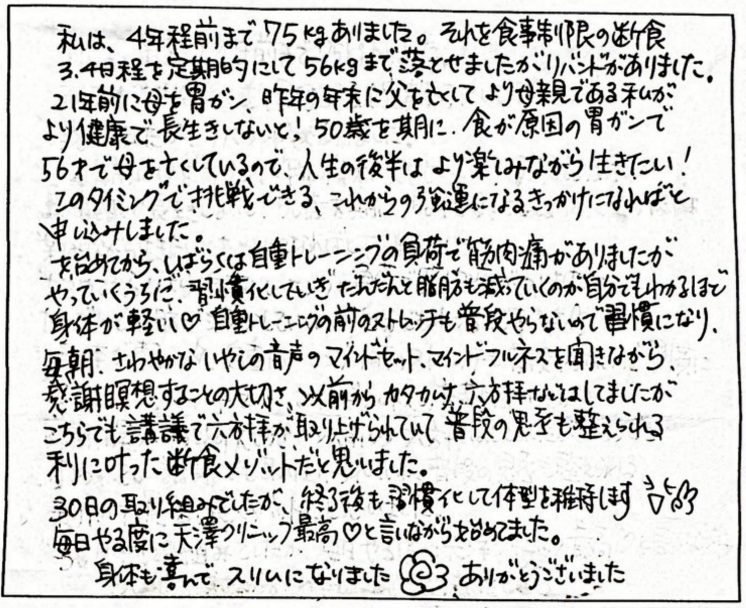 私は、4年程前まで75kgありました。それを食事制限の断食
3.4日程を定期的にして56kgまで落とせましたがリバンドがありました。
21年前に母を胃ガン、昨年の年末に父を亡くして より母親である私が
より健康で長生きしないと！50歳を期に、食が原因の胃ガンで
56才で母を亡くしているので、人生の後半は より楽しみながら生きたい！
このタイミングで挑戦できる、これからの強運になるきっかけになればと
申し込みしました。
始めてから、しばらくは自重トレーニングの負荷で筋肉痛がありましたが
やっていくうちに、習慣化していき だんだんと脂肪も減っていくのが自分でもわかるほど
身体が軽い♡ 自重トレーニングの前のストレッチも普段やらないので習慣になり、
毎朝、さわやかな いやしの音声の マインドセット、マインドフルネスを聞きながら、
感謝瞑想することの大切さ、以前から カタカムナ 六方拝などはしてましたが
こちらでも講議で六方拝が取り上げられていて 普段の思考も整えられる
利に叶った断食メゾットだと思いました。
30日の取り組みでしたが、終了後も習慣化して体型を維持します
毎日やる度に天澤クリニック最高♡と言いながら始めてました。
身体も喜んで スリムになりました ありがとうございました